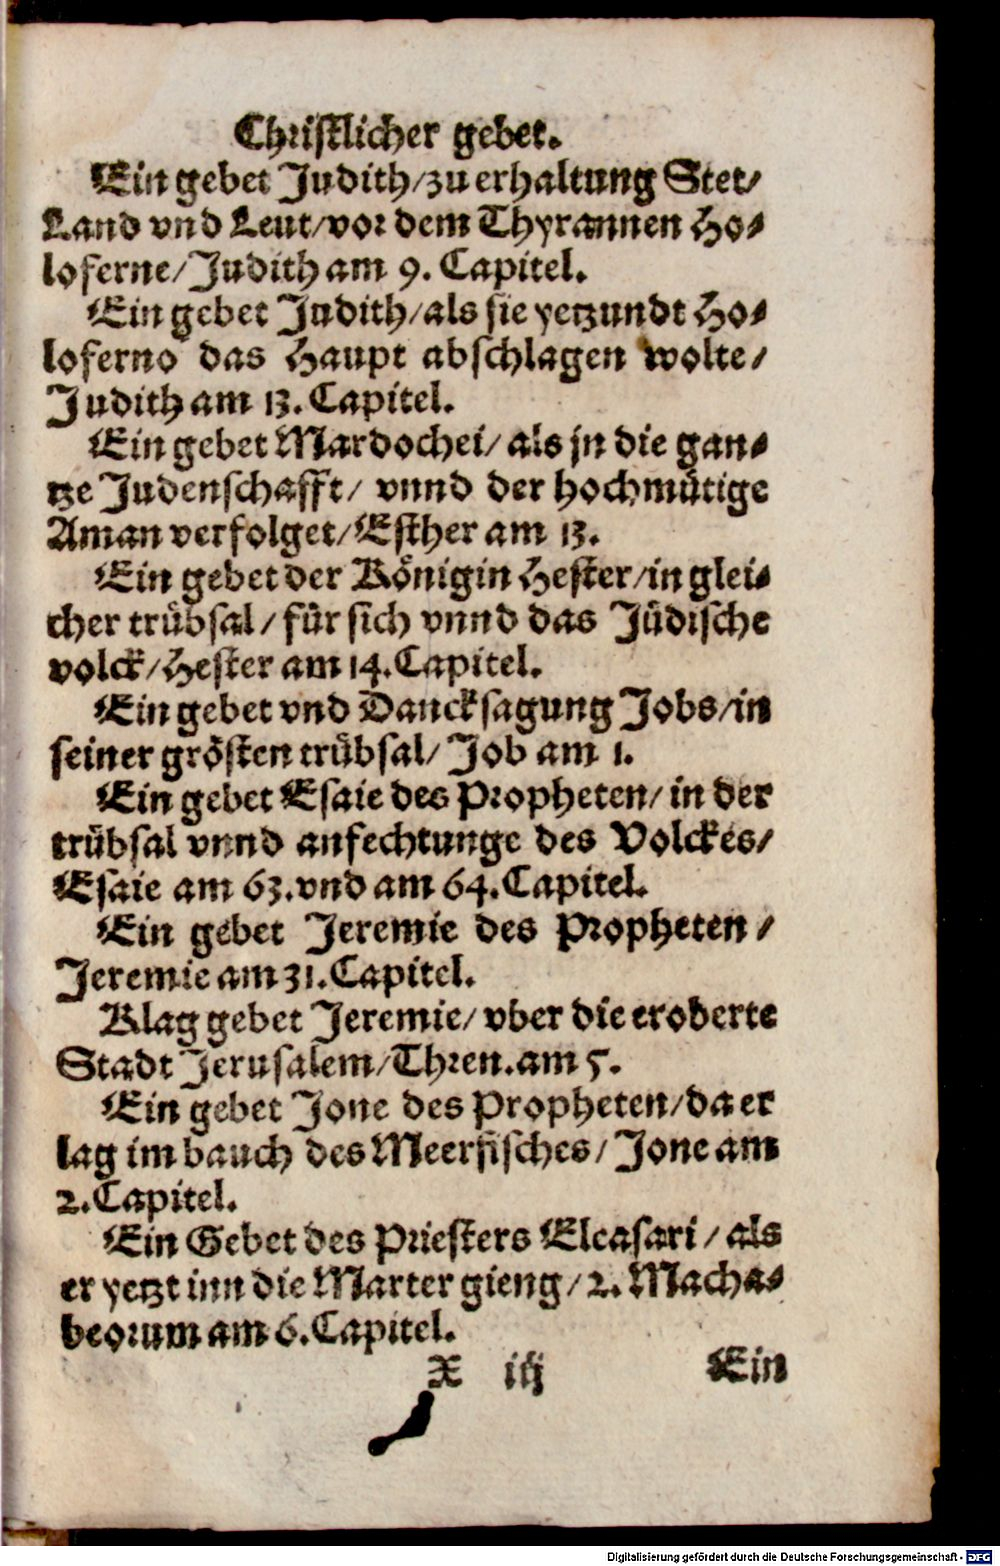 Christlicher gebet.
Ein gebet Judith/zu erhaltung Stet/
Land vnd Leut/vor dem Thyrannen Ho⸗
loferne/Judith am 9. Capitel.
Ein gebet Judith/als sie yetzundt Ho⸗
loferno das Haupt abschlagen wolte/
Judith am 13. Capitel.
Ein gebet Mardochei/ als jn die gan⸗
tze Judenschafft/ vnnd der hochmuͤtige
Aman verfolget/Esther am 13.
Ein gebet der Koͤnigin Hester/in glei⸗
cher truͤbsal/ fuͤr sich vnnd das Juͤdische
volck/Hester am 14. Capitel.
Ein gebet vnd Dancksagung Jobs/in
seiner groͤsten truͤbsal/ Job am 1.
Ein gebet Esaie des Propheten/ in der
truͤbsal vnnd anfechtunge des Volckes/
Esaie am 63. vnd am 64. Capitel.
Ein gebet Jeremie des Propheten/
Jeremie am 31. Capitel.
Klag gebet Jeremie/ vber die eroderte
Stadt Jerusalem/Thren. am 5.
Ein gebet Jone des Propheten/da er
lag im bauch des Meerfisches/ Jone am
2. Capitel.
Ein Gebet des Priesters Eleasari/ als
er yetzt inn die Marter gieng/ 2. Macha⸗
beorum am 6. Capitel.
X iij Ein
Digitalisierung gefördert durch die Deutsche Forschungsgemeinschaft - DFG